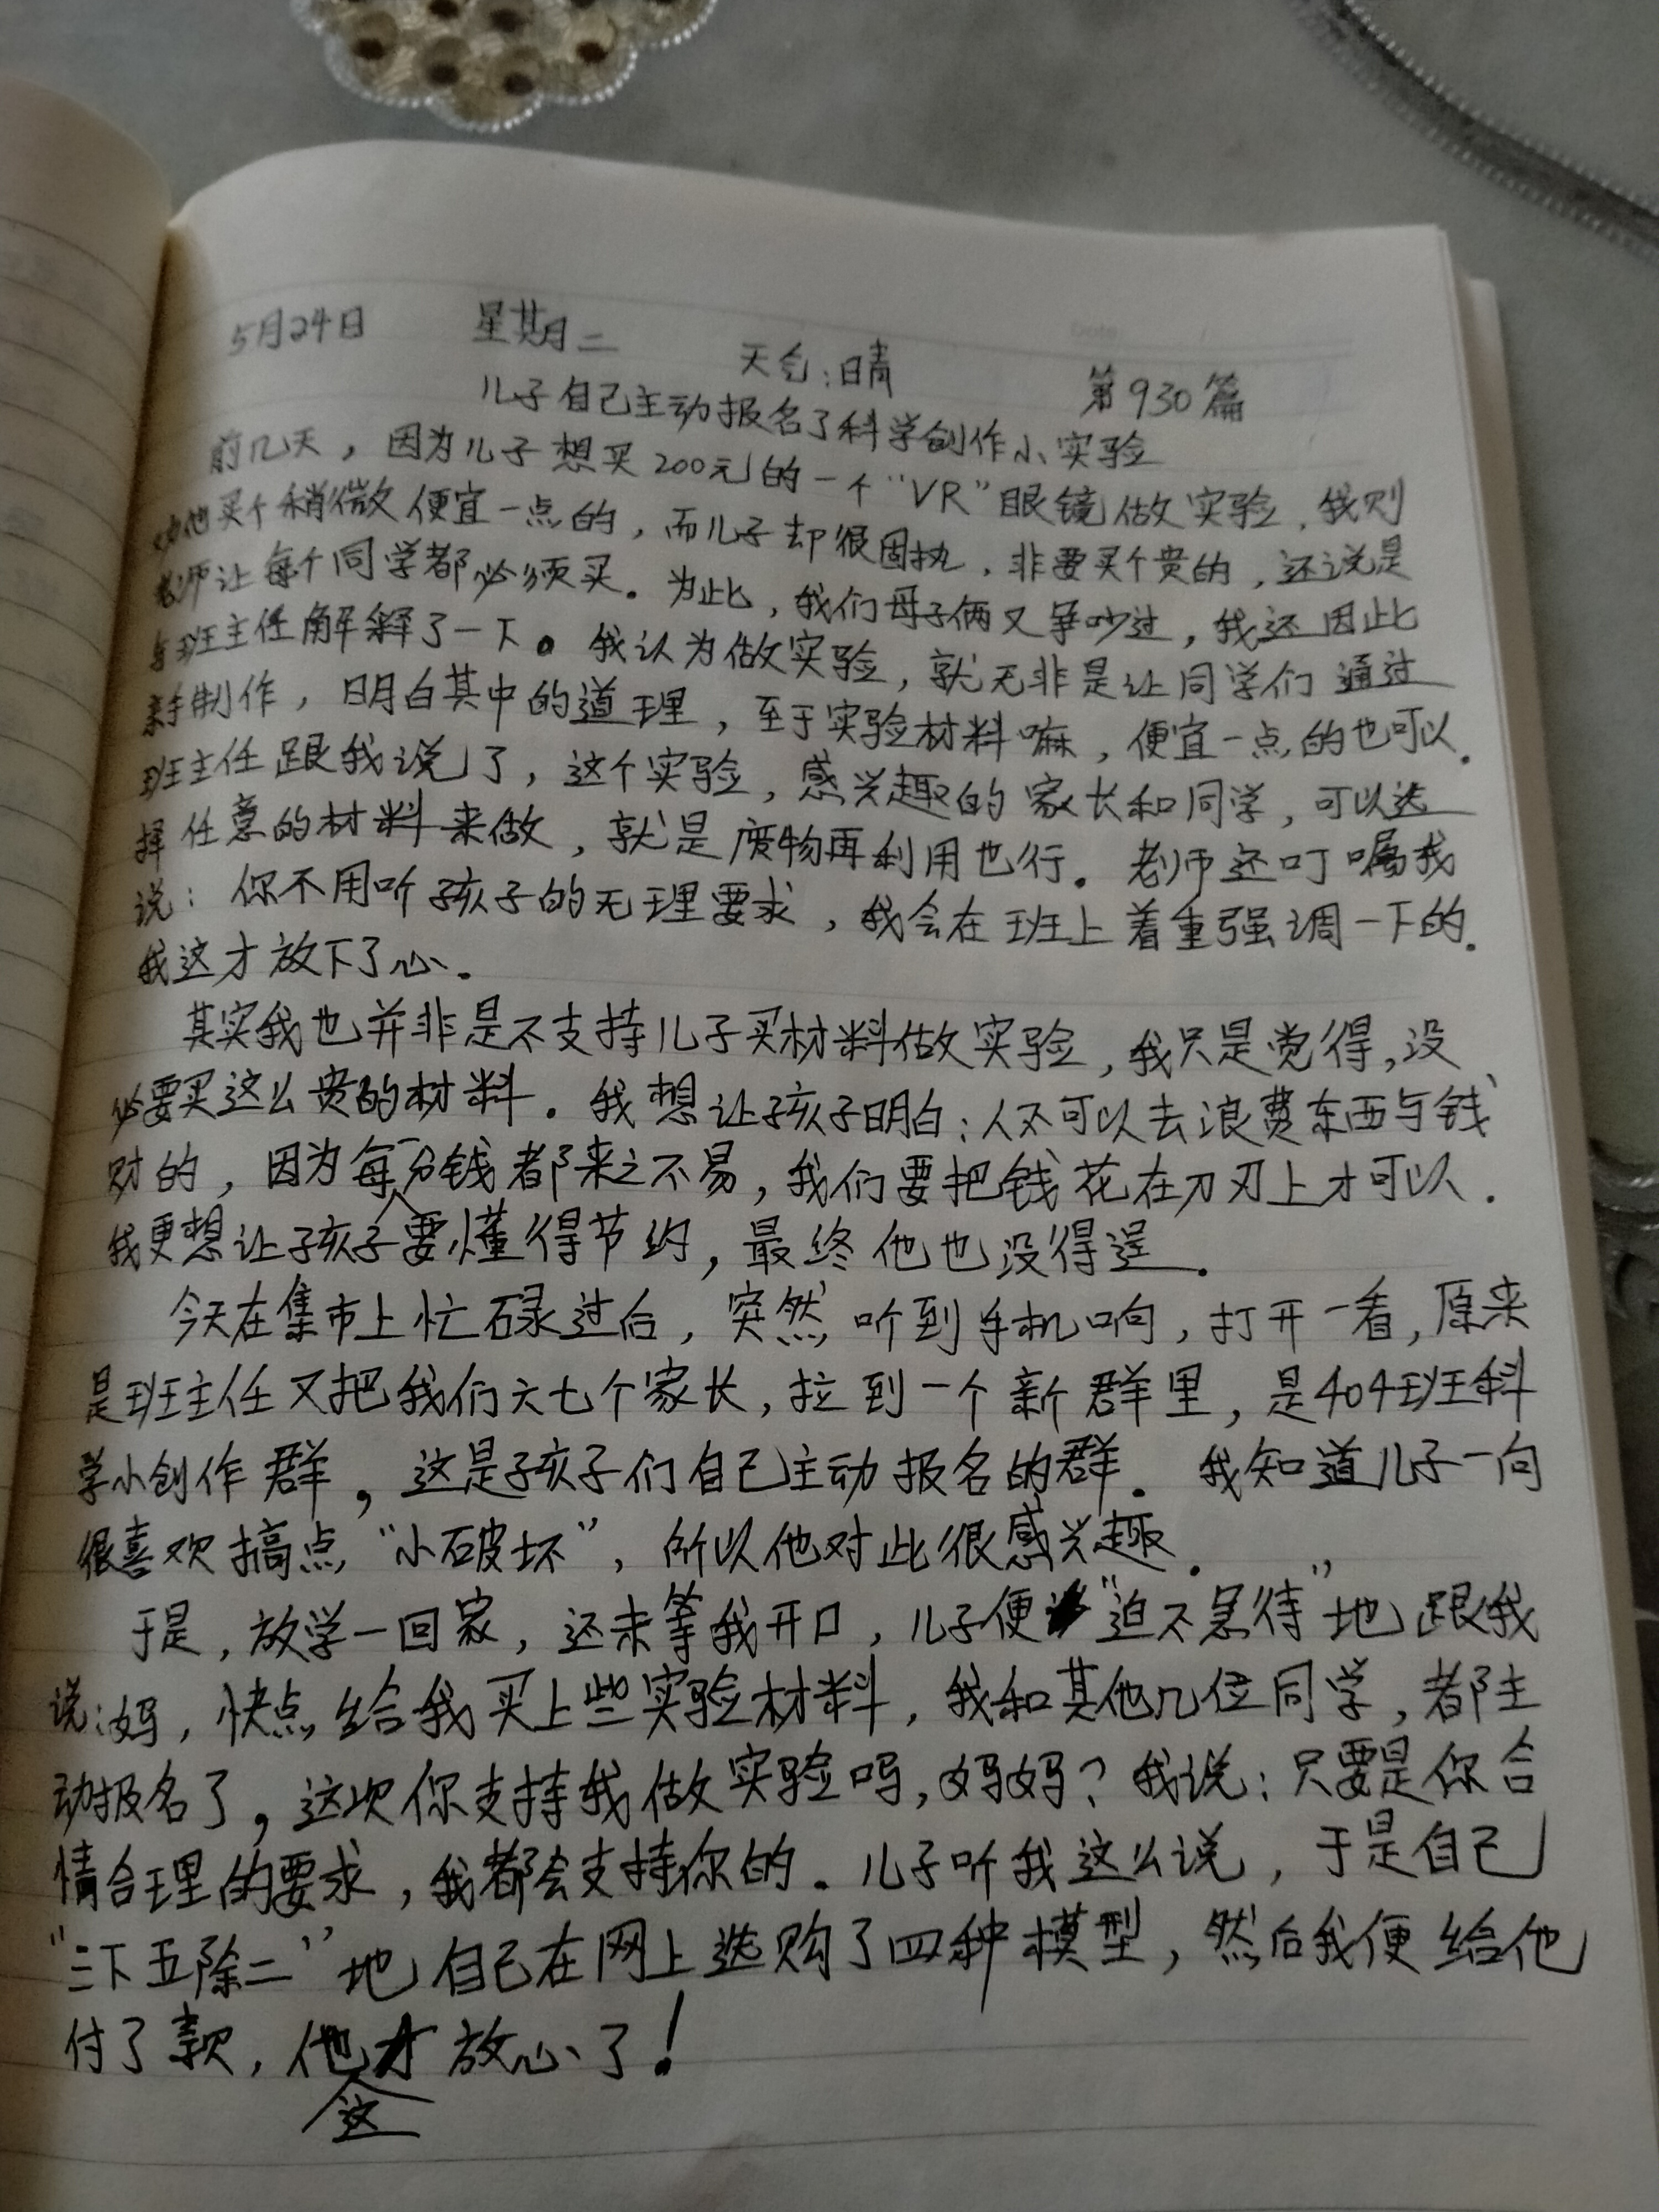 5月24日 星期二 天气:晴 第930篇
儿子自己主动报名了科学创作小实验
前几天，因为儿子想买200元的一个“VR”眼镜做实验，我则
他买个稍微便宜一点的，而儿子却很固执，非要买个贵的，还说是
老师让每个同学都必须买。为此，我们母子俩又争吵过，我还因此
与班主任解释了一下。我认为做实验，就无非是让同学们通过
制作，明白其中的道理，至于实验材料嘛，便宜一点的也可以.
班主任跟我说了，这个实验，感兴趣的家长和同学，可以选
择任意的材料来做，就是废物再利用也行。老师还叮嘱我
说：你不用听孩子的无理要求，我会在班上着重强调一下的.
我这才放下了心.
其实我也并非是不支持儿子买材料做实验，我只是觉得，没
必要买这么贵的材料.我想让孩子明白：人不可以去浪费东西与钱
财的，因为每一分钱都来之不易，我们要把钱花在刀刃上才可以.
我更想让孩子要懂得节约，最终他也没得逞.
今天在集市上忙碌过后，突然听到手机响，打开一看，原来
是班主任又把我们六七个家长，拉到一个新群里，是404班科
学小创作群，这是孩子们自己主动报名的群.我知道儿子一向
很喜欢搞点“小破坏”，所以他对此很感兴趣.
于是，放学一回家，还未等我开口，儿子便“迫不急待”地跟我
说：妈，快点给我买上些实验材料，我和其他几位同学，都主
动报名了，这次你支持我做实验吗，妈妈？我说：只要是你合
情合理的要求，我都会支持你的.儿子听我这么说，于是自己
“三下五除二”地自己在网上选购了四种模型，然后我便给他
付了款，他这才放心了！